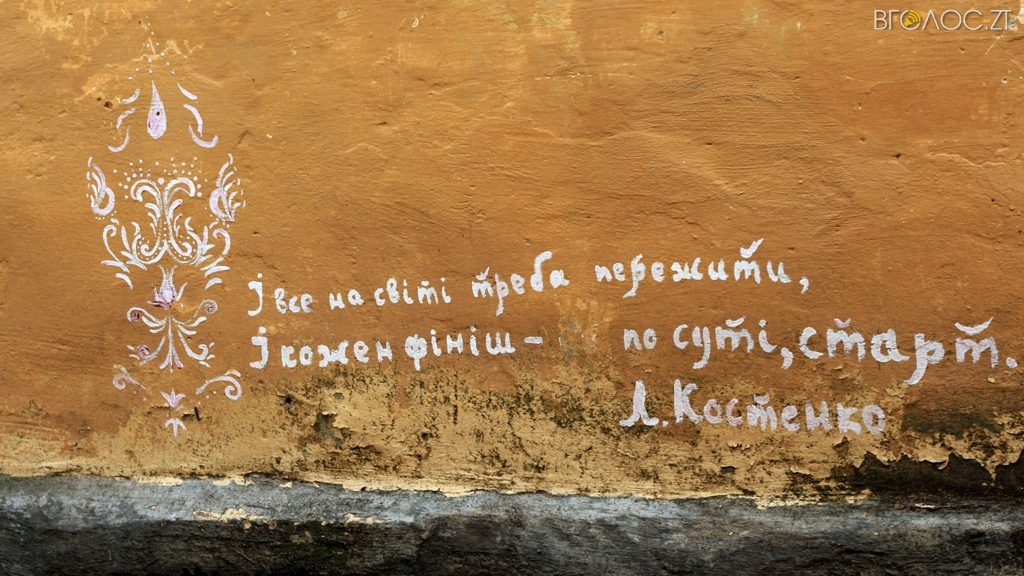 ВГОЛОС.ZT
І все на світі треба пережити,
І кожен фініш - по суті, старт.
Л. Костенко